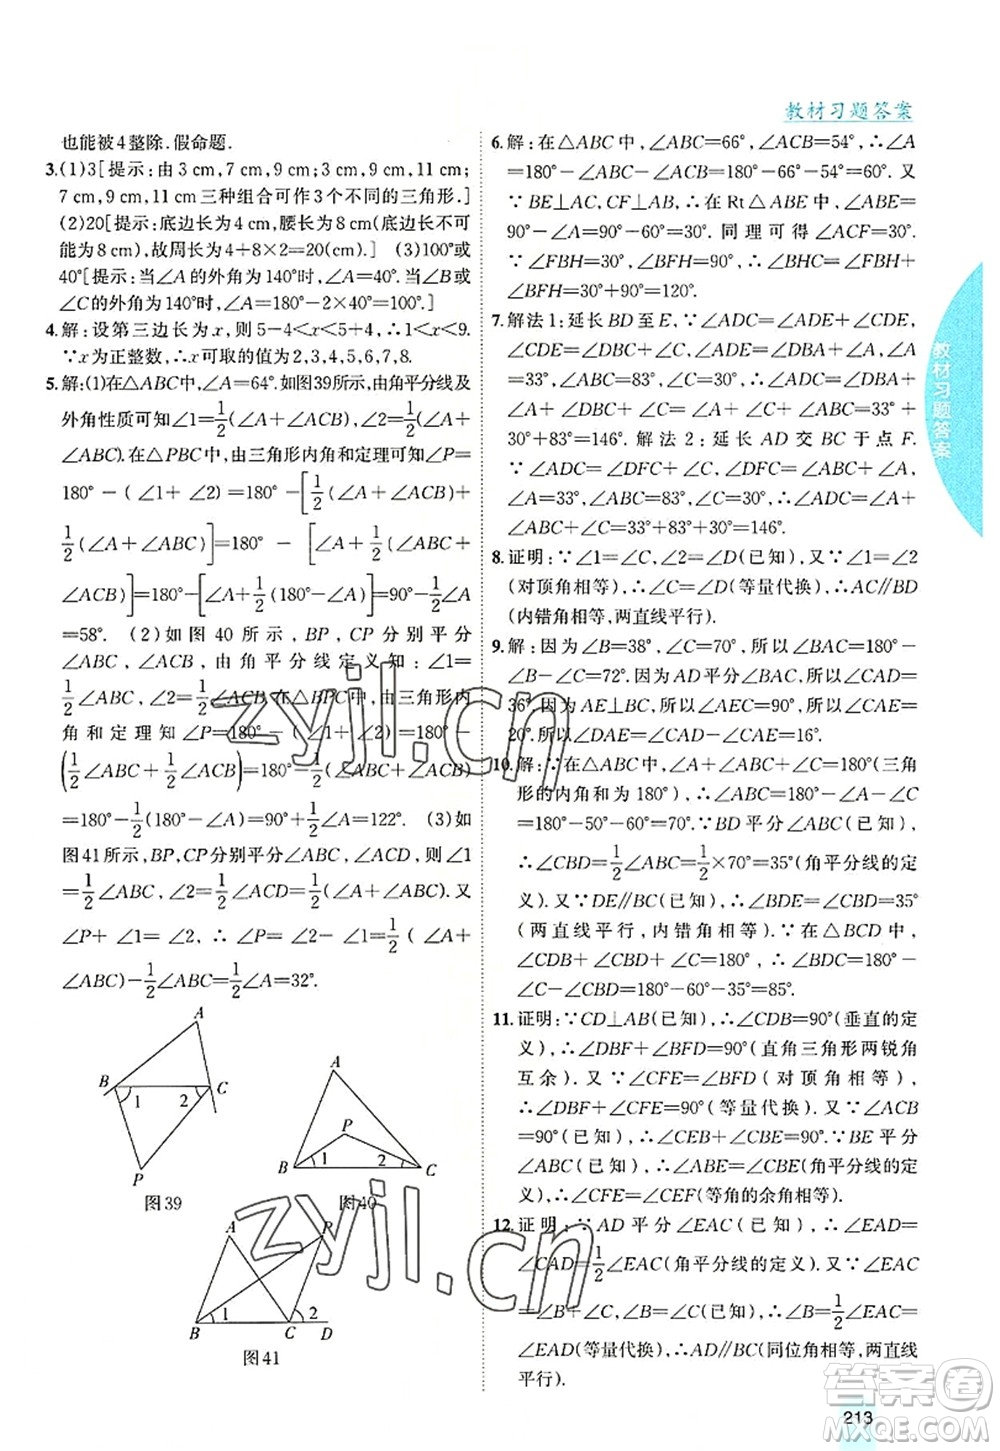 教材习题答案
也能被4整除.假命题.
3.(1)3[提示:由3 cm,7 cm,9 cm;3 cm,9 cm,11 cm;
7 cm,9 cm,11 cm三种组合可作3个不同的三角形.]
(2)20[提示:底边长为4 cm,腰长为8 cm(底边长不可
能为8 cm),故周长为4+8×2=20(cm).] (3)100°或
40°[提示:当∠A的外角为140°时,∠A=40°.当∠B或
∠C的外角为140°时,∠A=180°-2×40°=100°.]
4.解:设第三边长为x,则5-4<x<5+4,∴1<x<9.
∵x为正整数,∴x可取的值为2,3,4,5,6,7,8.
5.解:(1)在△ABC中,∠A=64°.如图39所示,由角平分线及
外角性质可知∠1=1/2(∠A+∠ACB),∠2=1/2(∠A+
∠ABC).在△PBC中,由三角形内角和定理可知∠P=
180°-(∠1+∠2)=180°-[1/2(∠A+∠ACB)+
1/2(∠A+∠ABC)]=180°-[∠A+1/2(∠ACB+
∠ABC)]=180°-[∠A+1/2(180°-∠A)]=90°-1/2∠A
=58°. (2)如图40所示,BP,CP分别平分
∠ABC,∠ACB,由角平分线定义知:∠1=
1/2∠ABC,∠2=1/2∠ACB.在△BPC中,由三角形内
角和定理知∠P=180°-(∠1+∠2)=180°-
(1/2∠ABC+1/2∠ACB)=180°-1/2(∠ABC+∠ACB)
=180°-1/2(180°-∠A)=90°+1/2∠A=122°. (3)如
图41所示,BP,CP分别平分∠ABC,∠ACD,则∠1
=1/2∠ABC,∠2=1/2∠ACD=1/2(∠A+∠ABC).又
∠P+∠1=∠2,∴∠P=∠2-∠1=1/2(∠A+
∠ABC)-1/2∠ABC=1/2∠A=32°.
A
B 1 2 C
P
图39
A
P
B 1 2 C
图40
A P
B 1 C 2 D
图41
6.解:在△ABC中,∠ABC=66°,∠ACB=54°,∴∠A
=180°-∠ABC-∠ACB=180°-66°-54°=60°.又
∵BE⊥AC,CF⊥AB,∴在Rt△ABE中,∠ABE=
90°-∠A=90°-60°=30°.同理可得∠ACF=30°.
∵∠FBH=30°,∠BFH=90°,∴∠BHC=∠FBH+
∠BFH=30°+90°=120°.
7.解法1:延长BD至E,∵∠ADC=∠ADE+∠CDE,
∠CDE=∠DBC+∠C,∠ADE=∠DBA+∠A,
∠A=33°,∠C=30°,∴∠ADC=∠A+∠DBA+
∠A+∠DBC+∠C=∠A+∠ABC+∠C=33°+
30°+83°=146°.解法2:延长AD交BC于点F.
∵∠ADC=∠C+∠DFC,∠DFC=∠ABC+∠A,
∠A=33°,∠C=30°,∠ABC=83°,∴∠ADC=∠A+
∠ABC+∠C=33°+83°+30°=146°.
8.证明:∵∠1=∠C,∠2=∠D(已知),又∵∠1=∠2
(对顶角相等),∴∠C=∠D(等量代换),∴AC∥BD
(内错角相等,两直线平行).
9.解:因为∠B=38°,∠C=70°,所以∠BAC=180°
-∠B-∠C=72°.因为AD平分∠BAC,所以∠CAD=
36°.因为AE⊥BC,所以∠AEC=90°,所以∠CAE=
20°.所以∠DAE=∠CAD-∠CAE=16°.
10.解:∵在△ABC中,∠A+∠ABC+∠C=180°(三角
形的内角和为180°),∴∠ABC=180°-∠A-∠C
=180°-50°-60°=70°.∵BD平分∠ABC(已知),
∴∠CBD=1/2∠ABC=1/2×70°=35°(角平分线的定
义).又∵DE∥BC(已知),∴∠BDE=∠CBD=35°
(两直线平行,内错角相等).∵在△BCD中,
∠CBD+∠C+∠BDC=180°,∴∠BDC=180°-
∠CBD-∠C=180°-60°-35°=85°.
11.证明:∵CD⊥AB(已知),∴∠CDB=90°(垂直的定
义),∴∠DBF+∠BFD=90°(直角三角形两锐角
互余).又∵∠CFE=∠BFD(对顶角相等),
∴∠DBF+∠CFE=90°(等量代换).又∵∠ACB
=90°(已知),∴∠CBE+∠CEF=90°.∵BE平分
∠ABC(已知),∴∠CBE=∠DBF(角平分线的定
义),∴∠CFE=∠CEF(等角的余角相等).
12.证明:∵AD平分∠EAC(已知),∴∠EAD=
∠CAD=1/2∠EAC(角平分线的定义).又∵∠EAC
=∠B+∠C,∠B=∠C(已知),∴∠B=1/2∠EAC=
∠EAD(等量代换),∴AD∥BC(同位角相等,两直线
平行).
教材习题答案
213
zyjl.cn
zyjl.cn
答案圈
MXQE.COM